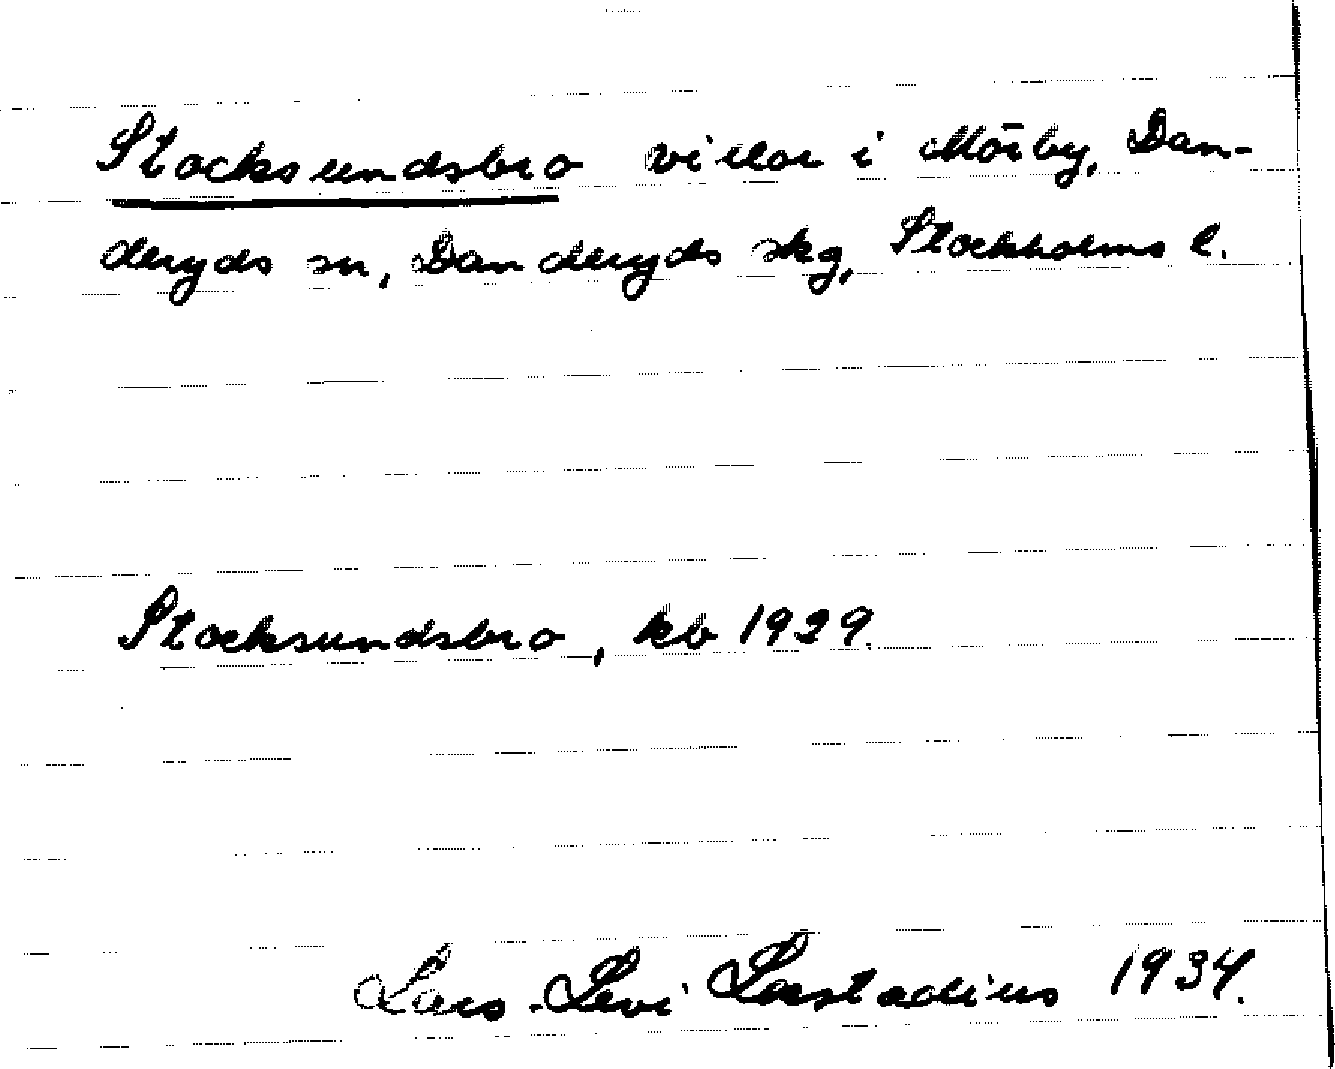 Stocksundsbro villor i Mörby, Dan-
deryds sn, Danderyds skg, Stockholms l.
Stocksundsbro, kb 1929.
Lars-Levi Læstadius 1934.